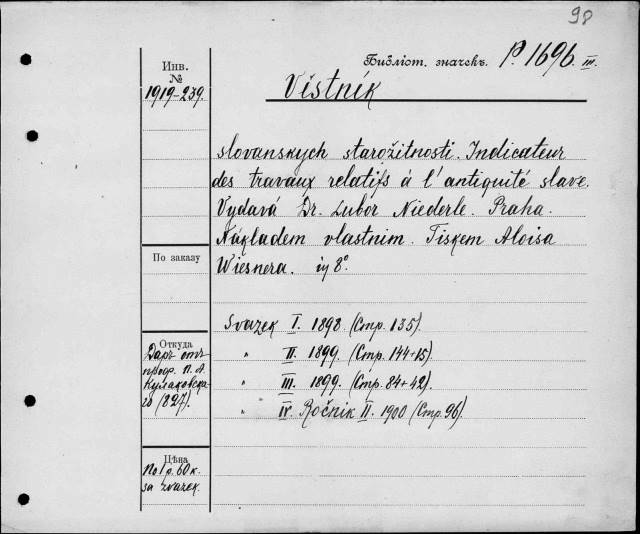 98
Библіот. значекъ. P. 1696. III.
Инв.
№
1919-239.
Věstník
slovanských starožitnosti. Indicateur
des travaux relatifs à l'antiquité slave.
Vydavá Dr. Lubor Niederle. Praha.
Nákladem vlastnim. Tiskem Aloisa
Wiesnera. in 8°.
По заказу
Svazek I. 1898. (Стр. 135).
" II. 1899. (Стр. 144+15).
" III. 1899. (Стр. 84+42).
" IV. Ročnik II. 1900 (Стр. 96).
Откуда
Даръ отъ
проф. П. А.
Кулаковска-
го (827).
Цѣна
По 1 р. 60 к.
за svazek.